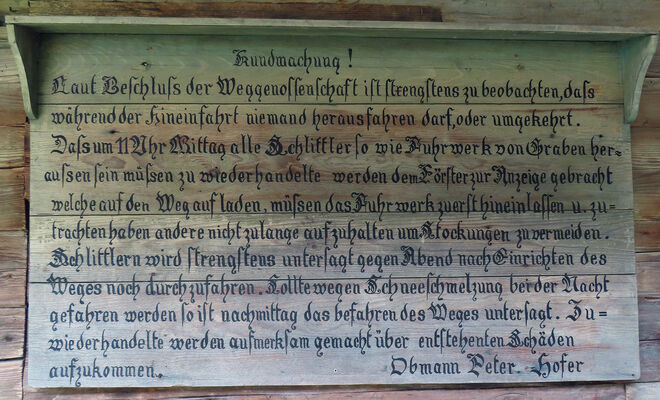 Kundmachung!
Laut Beschluss der Weggenossenschaft ist strengstens zu beobachten, dass
während der Hineinfahrt niemand herausfahren darf, oder umgekehrt.
Dass um 11 Uhr Mittag alle Schlittler so wie Fuhrwerk von Graben her=
aussen sein müssen zu wiederhandelte werden dem Förster zur Anzeige gebracht
welche auf den Weg aufladen, müssen das Fuhrwerk zuerst hineinlossen u. zu=
trachten haben andere nicht zulange aufzuhalten um Stockungen zu vermeiden.
Schlittlern wird strengstens untersagt gegen Abend nach Einrichten des
Weges noch durchzufahren. Sollte wegen Schneeschmelzung bei der Nacht
gefahren werden so ist nachmittag das befahren des Weges untersagt. Zu=
wiederhandelte werden aufmerksam gemacht über entstehenten Schäden
aufzukommen. Obmann Peter. Hofer